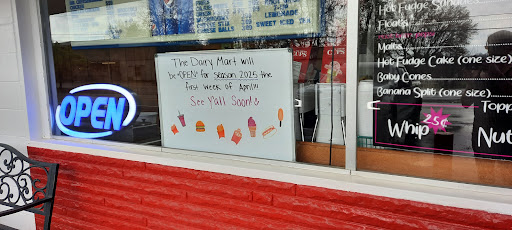 SWEET ICED TEA
OPEN
The Dairy Mart will
be OPEN for Season 2025 the
first week of April!!
See Y'all Soon!
Hot Fudge Sundae
Floats
Malts
Hot Fudge Cake (one size)
Baby Cones
Banana Split (one size)
Topp
Whip 25¢
Nut